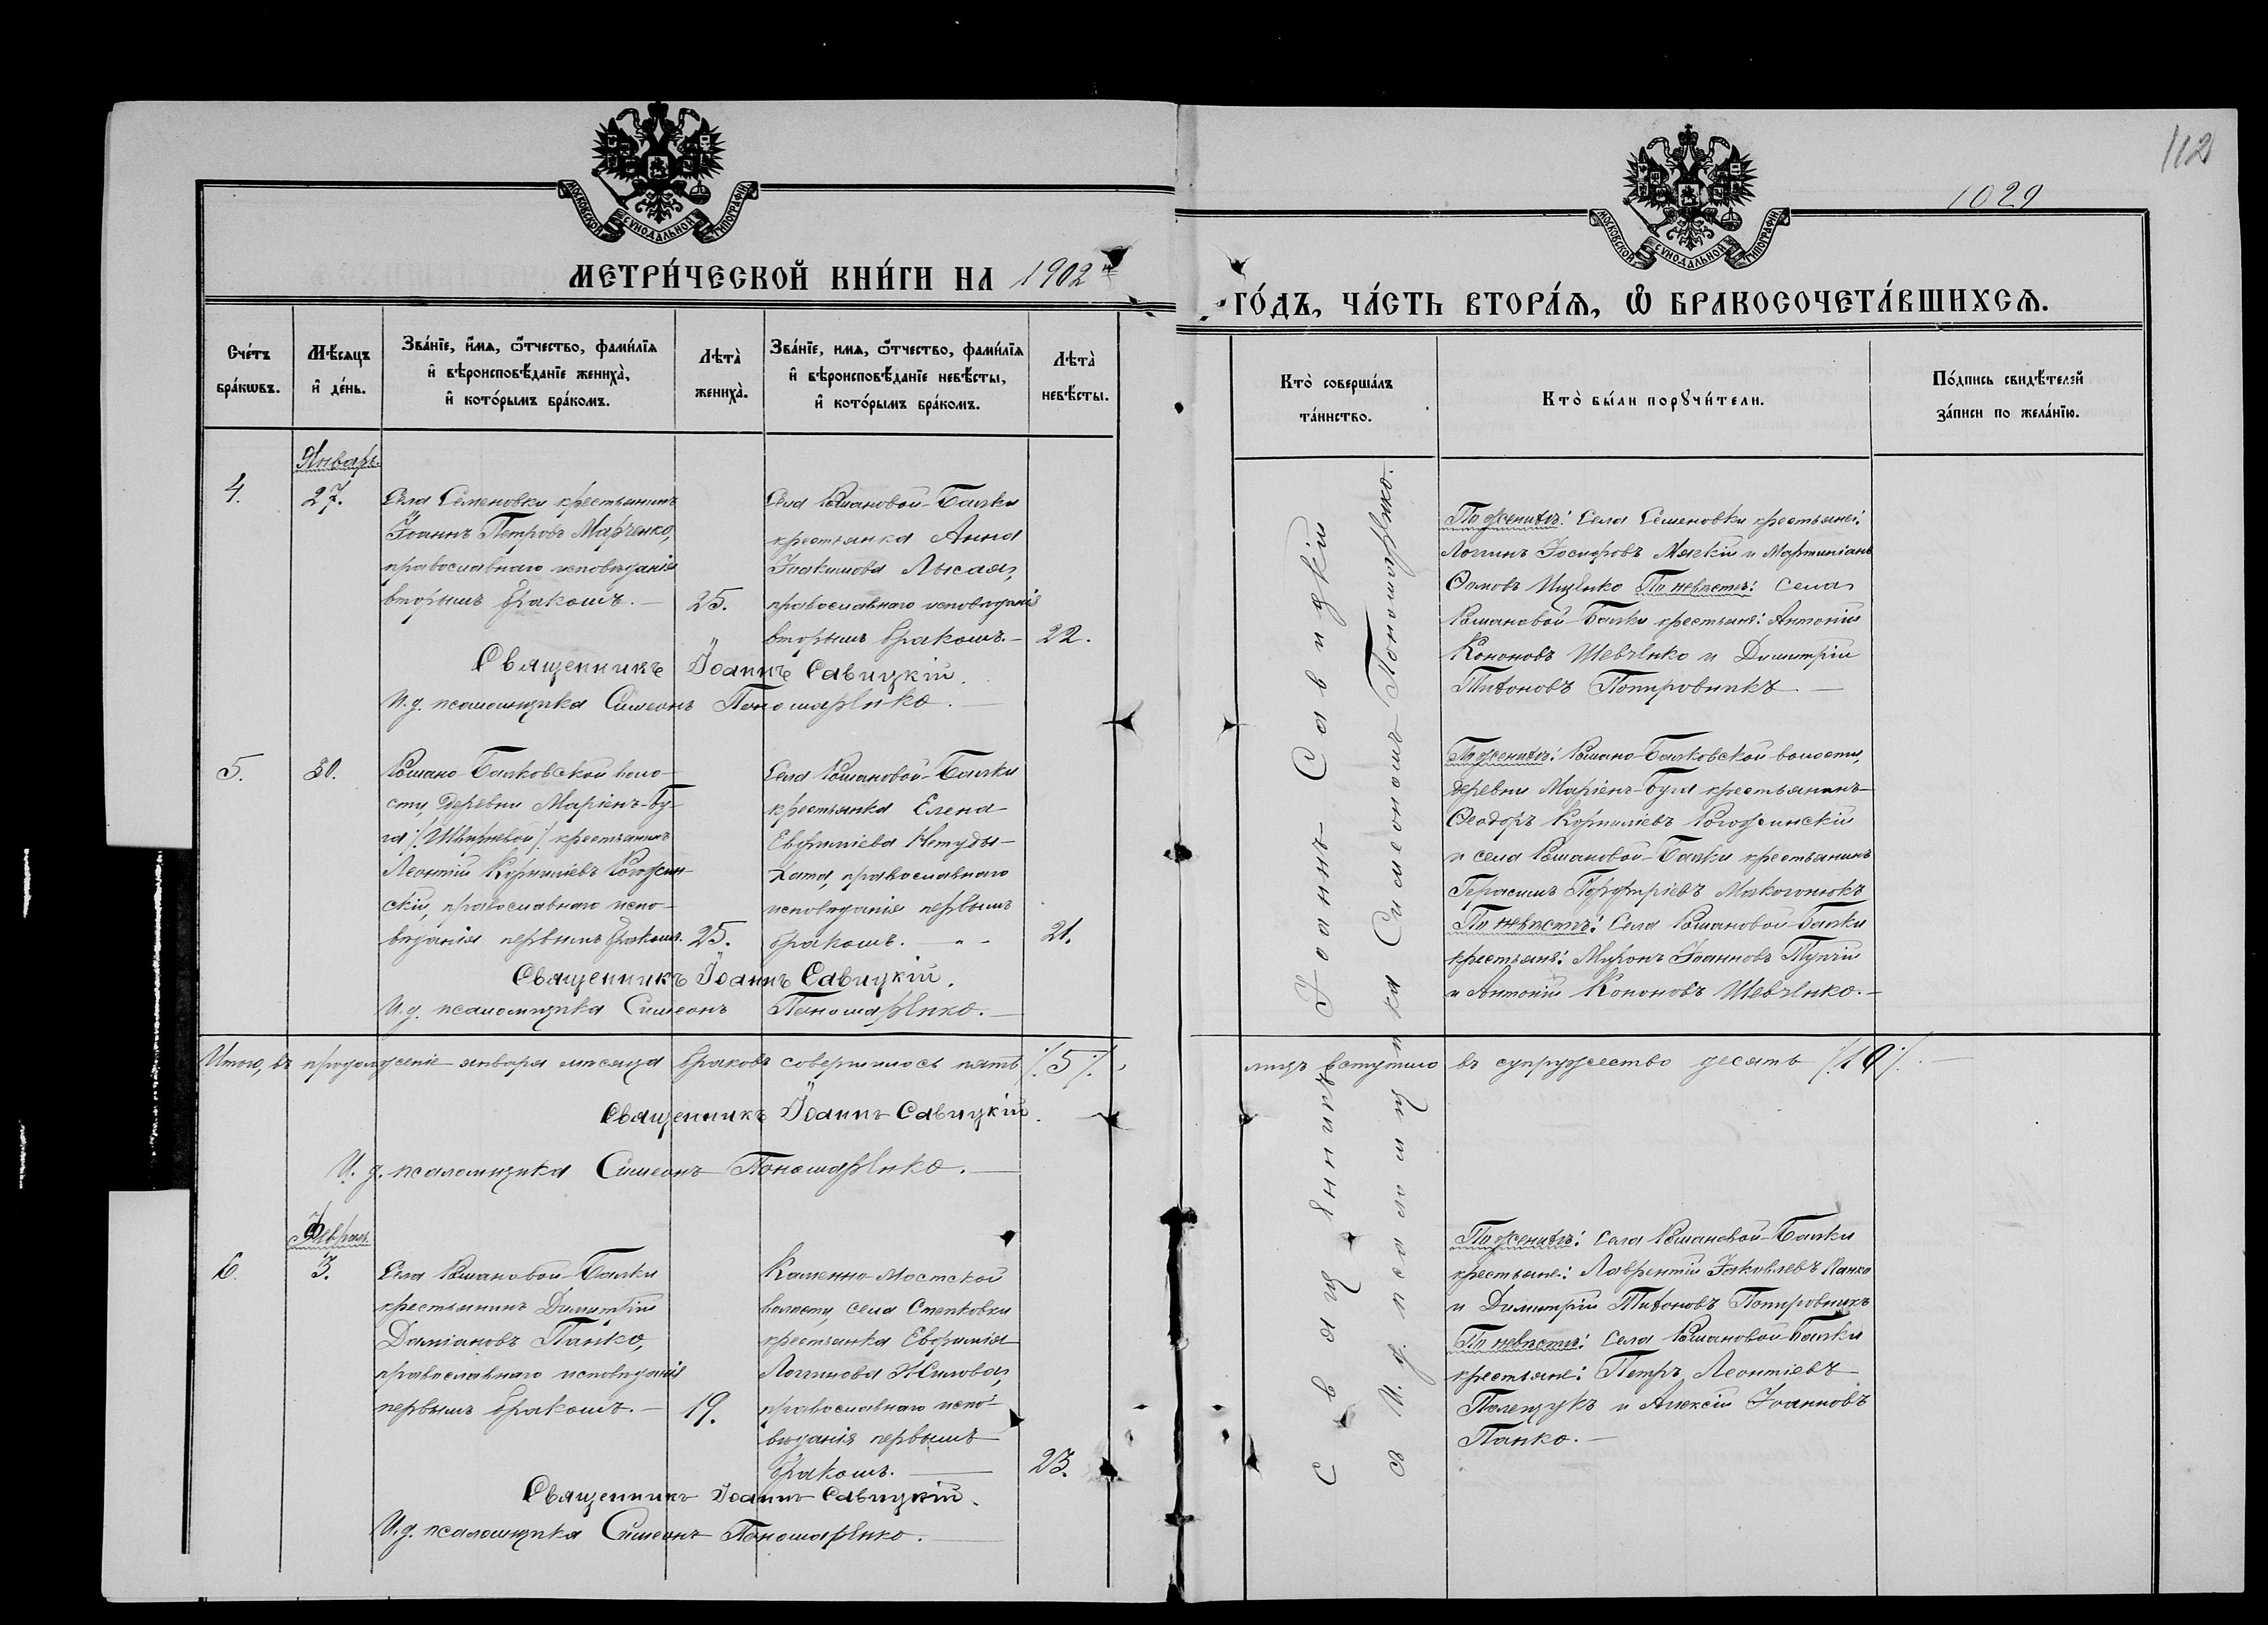 112
1029
МОСКОВСКОЙ СѴНОДАЛЬНОЙ ТИПОГРАФІИ
МОСКОВСКОЙ СѴНОДАЛЬНОЙ ТИПОГРАФІИ
МЕТРИ́ЧЕСКОЙ КНИ́ГИ НА 1902
ГО́ДЪ, ЧА́СТЬ ВТОРА́Ѧ, Ѿ БРАКОСОЧЕТА́ВШИХСѦ.
Сче́тъ бра́кѡвъ.
Мѣ́сяцъ и҆ де́нь.
Зва́нїе, и҆́мѧ, ѻ҆́тчество, фами́лїѧ
и҆ вѣроисповѣ́данїе жениха̀,
и҆ кото́рымъ бра́комъ.
Лѣта̀ жениха̀.
Зва́нїе, имѧ, ѻ҆́тчество, фами́лїѧ
и҆ вѣроисповѣ́данїе невѣ́сты,
и҆ кото́рымъ бра́комъ.
Лѣта̀ невѣ́сты.
Кто̀ соверша́лъ та́инство.
Кто̀ бы́ли порꙋчи́тели.
По́дпись свидѣ́телей
за́писи по жела́нїю.
Январь.
4.
27.
Села Семеновки крестьянинъ
Іоаннъ Петровъ Марченко,
православнаго исповѣданія
вторымъ бракомъ. —
25.
Села Романовой-Балки
крестьянка Анна
Іоакимова Лысая,
православнаго исповѣданія
вторымъ бракомъ. —
22.
Священникъ Іоаннъ Савицкій.
И. д. псаломщика Симеонъ Пономаренко. —
По женихѣ: Села Семеновки крестьяне:
Логгинъ Іосифовъ Мягкій и Мартиніанъ
Ищенко По невѣстѣ: Села
Романовой-Балки крестьяне: Антоній
Кононовъ Шевченко и Димитрій
Титоновъ Попировникъ. —
5.
30.
Романо-Балковской воло-
сти, деревни Маріенъ-Бу-
крестьянинъ
Леонтій Корниліевъ Рогожин-
скій, православнаго испо-
вѣданія первымъ бракомъ.
25.
Села Романовой-Балки
крестьянка Елена
Евфиміева Нетуды-
хата, православнаго
исповѣданія первымъ
бракомъ. —
21.
Священникъ Іоаннъ Савицкій.
И. д. псаломщика Симеонъ Пономаренко. —
По женихѣ: Романо-Балковской волости,
деревни Маріенъ-Буга крестьянинъ
Ѳеодоръ Корниліевъ Рогожинскій
и села Романовой-Балки крестьянинъ
Герасимъ Порфиріевъ Макогонюкъ
По невѣстѣ: Села Романовой-Балки
крестьяне: Миронъ Іоанновъ Тупчій
и Антоній Кононовъ Шевченко. —
Итого, въ продолженіе января мѣсяца браковъ совершилось пять /5/,
лицъ вступило въ супружество десять /10/. —
Священникъ Іоаннъ Савицкій.
И. д. псаломщика Симеонъ Пономаренко. —
Февраль.
6.
3.
Села Романовой-Балки
крестьянинъ Димитрій
Даміановъ Панко,
православнаго исповѣданія
первымъ бракомъ. —
19.
Каменно-Мостской
волости, села Степковки
крестьянка Евфимія
Логгинова Жилова,
православнаго испо-
вѣданія первымъ
бракомъ. —
23.
Священникъ Іоаннъ Савицкій.
И. д. псаломщика Симеонъ Пономаренко. —
По женихѣ: Села Романовой-Балки
крестьяне: Лаврентій Іаковлевъ Панко
и Димитрій Титоновъ Попировникъ
По невѣстѣ: Села Романовой-Балки
крестьяне: Петръ Леонтіевъ
Полещукъ и Алексій Іоанновъ
Панко. —
Священникъ Іоаннъ Савицкій
съ И. д. псаломщика Симеономъ Пономаренко.